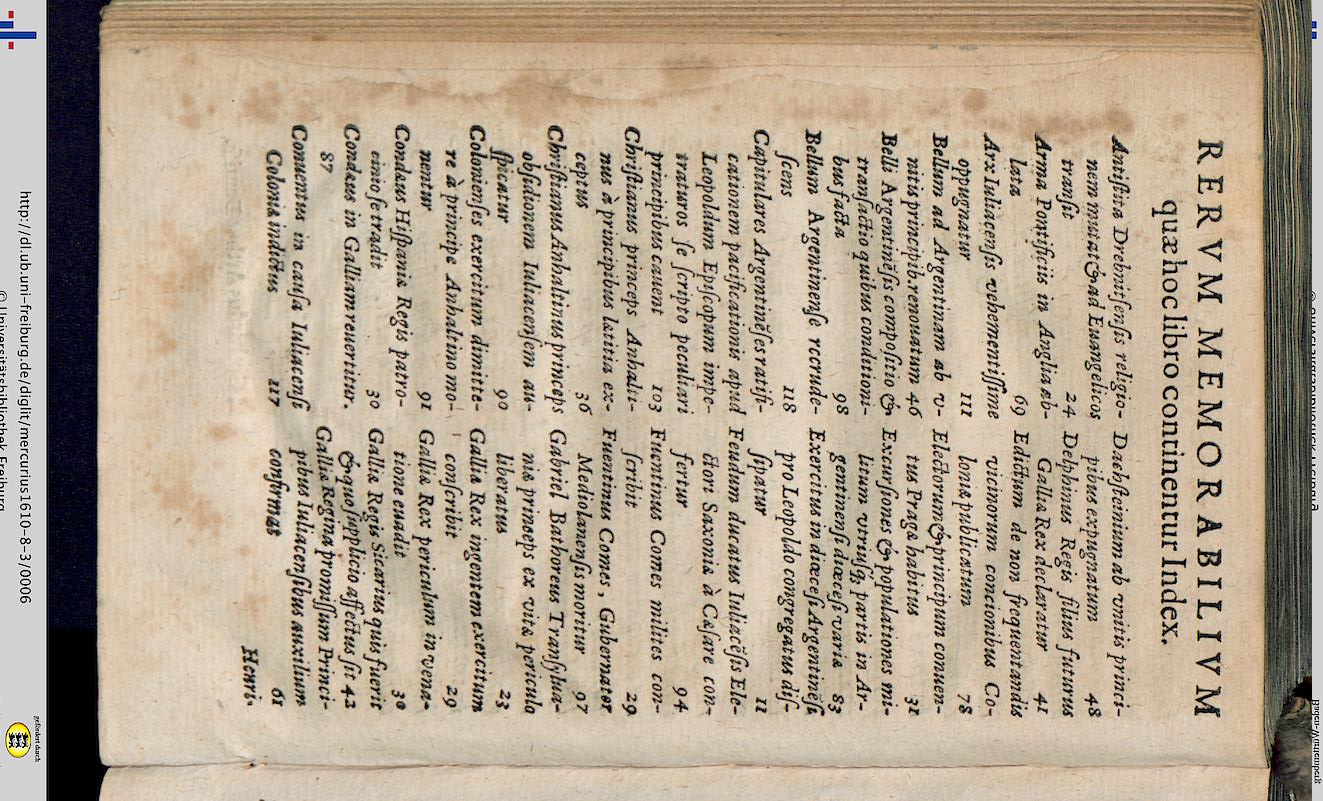 RERVM MEMORABILIVM
quæ hoc libro continentur Index.
Antistita Drebnitsensis religio-
nem mutat & ad Euangelicos
transit 24
Arma Pontificiis in Anglia ab-
lata 69
Arx Iuliacensis vehementissime
oppugnatur 111
Bellum ad Argentinam ab v-
nitis principib renouatum 46
Belli Argentinẽsis compositio &
transactio quibus conditioni-
bus facta 98
Bellum Argentinense recrude-
scens 118
Capitulares Argentinẽses ratifi-
cationem pacificationis apud
Leopoldum Episcopum impe-
traturos se scripto peculiari
principibus cauent 103
Christianus princeps Anhalti-
nus à principibus lætitia ex-
ceptus 36
Christianus Anhaltinus princeps
obsidionem Iuliacensem au-
spicatur 90
Colonienses exercitum dimitte-
re à principe Anhaltino mo-
nentur 91
Condæus Hispaniæ Regis patro-
cinio se tradit 30
Condæus in Galliam reuertitur.
87
Conuentus in causa Iuliacensi
Coloniæ indictus 117
Dachsteinium ab vnitis princi-
pibus expugnatum 48
Delphinus Regis filius futurus
Galliæ Rex declaratur 41
Edictum de non frequentandis
vicinorum concionibus Co-
loniæ publicatum 78
Electorum & principum conuen-
tus Pragæ habitus 31
Excursiones & populationes mi-
litum vtriusq; partis in Ar-
gentinensi diœcesi variæ 83
Exercitus in diœcesi Argentinẽsi
pro Leopoldo congregatus dis-
sipatur 11
Feudum ducatus Iuliacẽsis Ele-
ctori Saxoniæ à Cæsare con-
fertur 94
Fuentinus Comes milites con-
scribit 29
Fuentinus Comes, Gubernator
Mediolanensis moritur 97
Gabriel Bathoreus Transyluа-
niæ princeps ex vitæ periculo
liberatus 23
Galliæ Rex ingentem exercitum
conscribit 29
Galliæ Rex periculum in vena-
tione euadit 30
Galliæ Regis Sicarius quis fuerit
& quo supplicio affectus sit 42
Galliæ Regina promissum Princi-
pibus Iuliacensibus auxilium
confirmat 61
Henri-
http://dl.ub.uni-freiburg.de/diglit/mercurius1610-8-3/0006
© Universitätsbibliothek Freiburg
gefördert durch